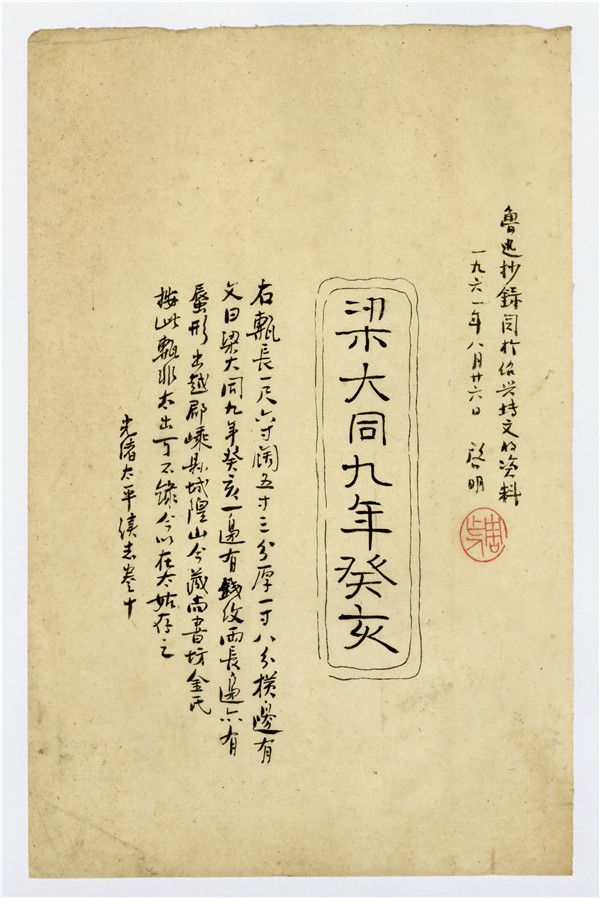 鲁迅抄录关於绍兴塼文的资料
一九六一年八月廿六日 启明
梁大同九年癸亥
右甎長一尺六寸阔五寸三分厚一寸八分横邊有
文曰梁大同九年癸亥一邊有錢文两長邊亦有
蜃形出越郡嵊县城隍山今藏尚書坊金氏
按此甎非太出丁不錄今以在太姑存之
光绪太平續志卷十